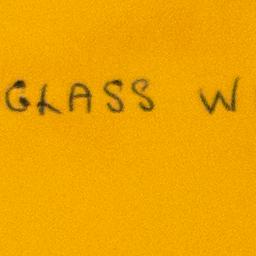 GLASS W